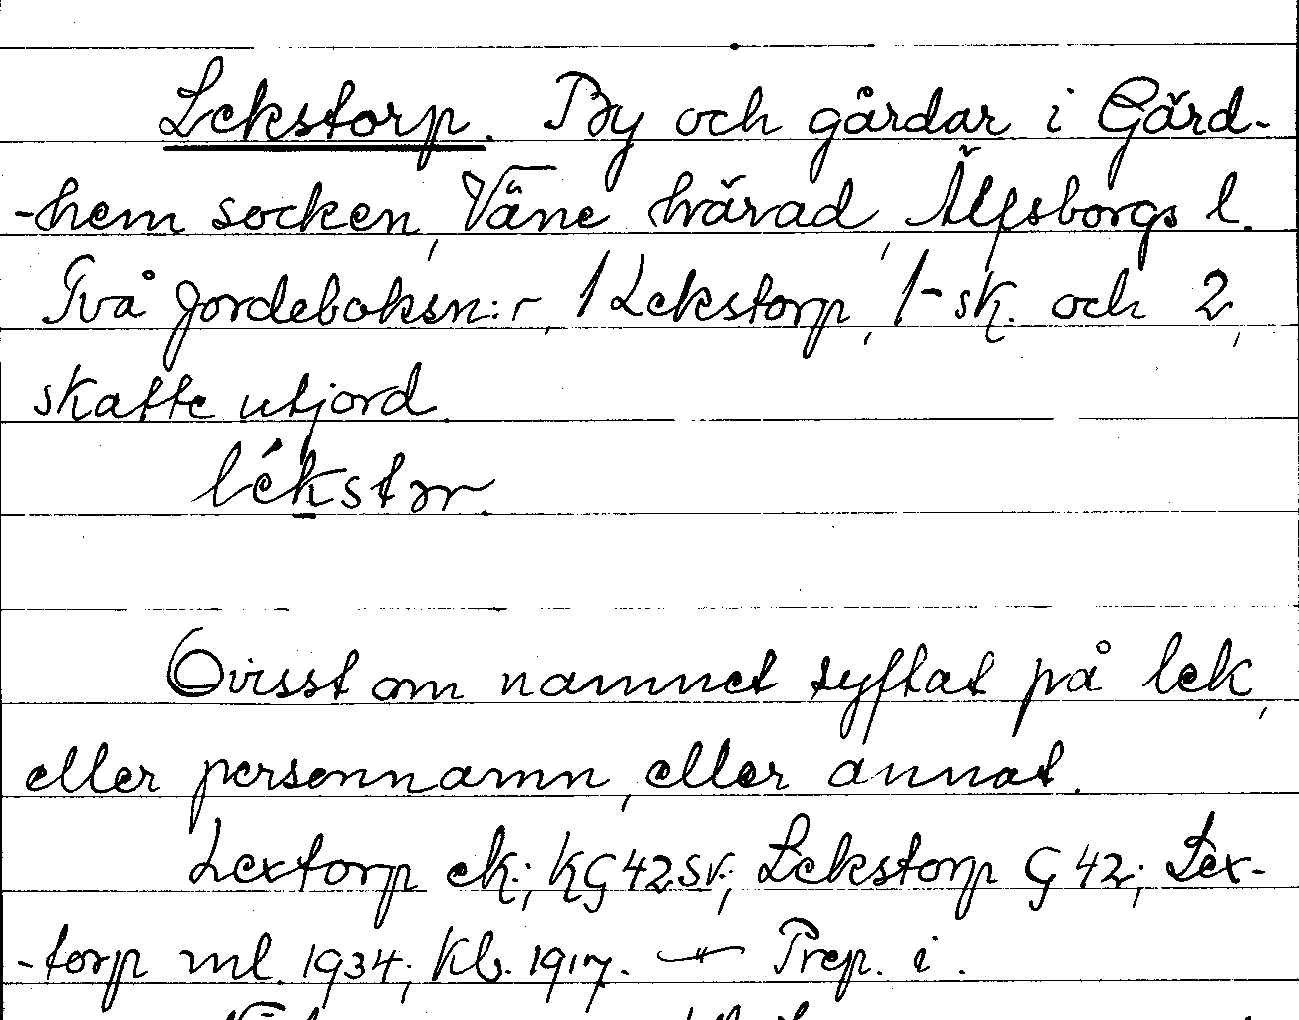 Lekstorp. By och gårdar i Gärd-
-hem socken, Väne härad, Älfsborgs l.
Två Jordeboksn:r, 1 Lekstorp, 1-sk. och 2,
skatte utjord.
lékstər.
Ovisst om namnet syftat på lek,
eller personnamn, eller annat.
Lextorp ek.; KG42sv.; Lekstorp G 42; Lex-
-torp ml. 1934; Kb. 1917. — Prep. i.